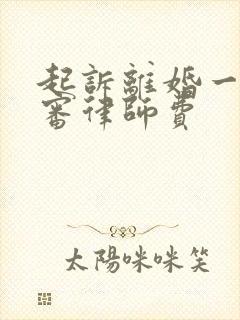 起訴離婚一
審律師費
太陽咪咪笑